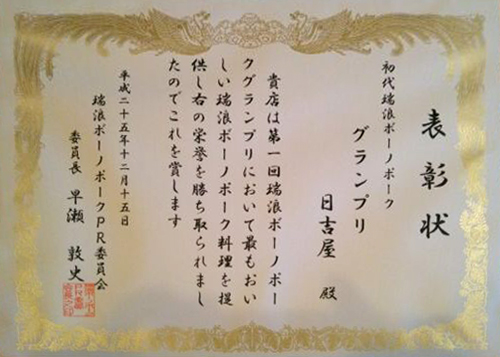 表彰状
初代瑞浪ボーノポーク
グランプリ
日吉屋 殿
貴店は第一回瑞浪ボーノポー
クグランプリにおいて最もおい
しい瑞浪ボーノポーク料理を提
供し右の栄誉を勝ち取られまし
たのでこれを賞します
平成二十五年十二月十五日
瑞浪ボーノポークPR委員会
委員長 早瀬 敦史